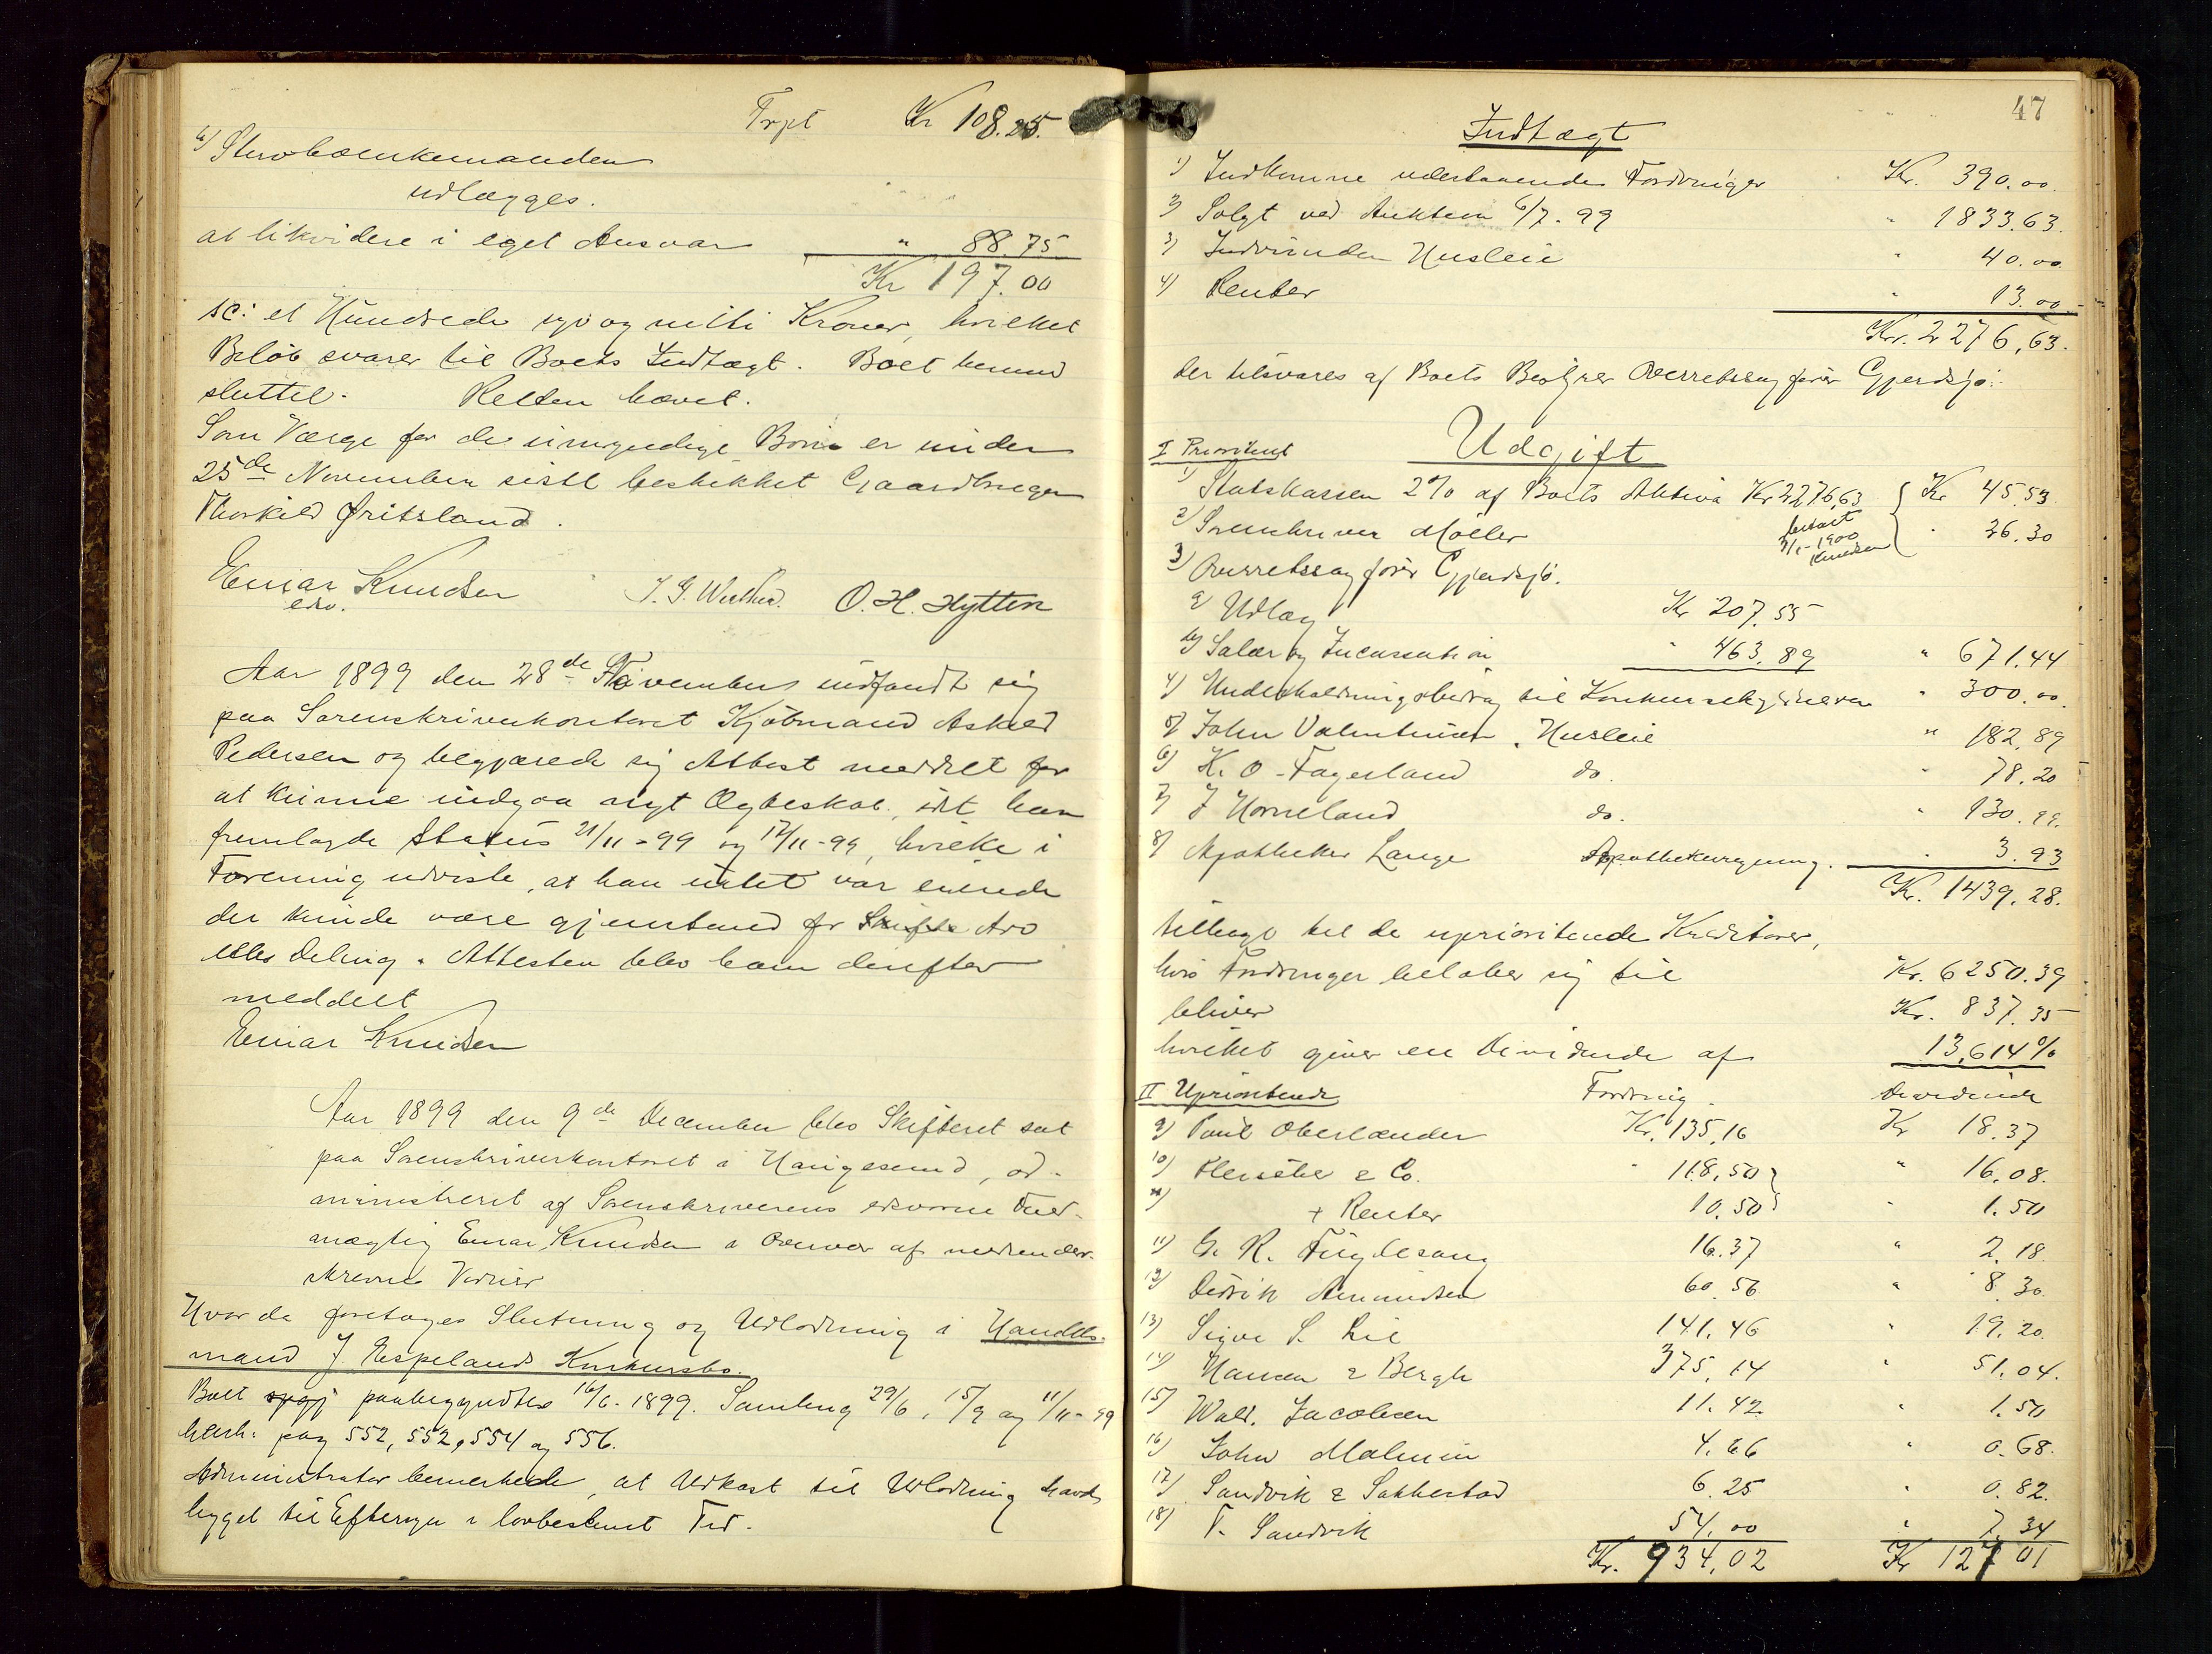 Trpt Kr 108.25.
6) Sterbboenkemanden
udlægges.
at likvidere i eget Ansvar " 88.75
Kr 197.00
sc: et Hundrede syv og nitti Kroner, hvilket
Beløb svarer til Boets Indtægt. Boet hermed
sluttet. Retten hævet.
Som Værge for de umyndige Børn er under
25de November sidstl beskikket Gaardbruger
Thorkild Fritsland.
Einar Knudsen
edsv.
O. H. Hytten
Aar 1899 den 28de November indfandt sig
paa Sorenskriverkontoret Kjøbmand Askild
Pedersen og begjærede sig Attest meddelt for
at kunne indgaa nyt Ægteskab, idet han
fremlagde Status 21/11-99 og 17/11-99, hvilke i
Forening udviste, at han intet var eiende
der kunde være gjenstand for Skifte Arv
eller Deling. Attesten blev ham derefter
meddelt
Einar Knudsen
Aar 1899 den 9de December blev Skifteret sat
paa Sorenskriverkontoret i Haugesund, ad-
ministreret af Sorenskriverens edsvorne Fuld-
mægtig Einar Knudsen i Overvær af medunder-
skrevne Vidner
Hvorda foretoges Slutning og Udlodning i Handels-
mand J. Espelands Konkursbo.
Boet paabegyndtes 16/6-1899. Samling 29/6, 15/9 og 11/11-99
beh. pag 552, 552, 554 og 556.
Administrator bemerkede, at Udkast til Udlodning havde
ligget til Eftersyn i lovbestemt Tid.
47
Indtægt
1) Indkomne udestaaende Fordringer Kr. 390.00
2) Solgt ved Auktion 6/7-99 " 1833.63.
3) Indvunden Husleie " 40.00
4) Renter " 13.00
Kr. 2276,63.
der tilsvares af Boets Bestyrer Overretssagfører Gjerdsjø.
Udgift
I Prioriteret
1) Statskassen 2% af Boets Aktiva Kr 2276,63 Kr 45.53
2) Sorenskriver Møller " 26.30
betalt
3/1-1900
Knudsen
3) Overretssagfører Gjerdsjø.
a) Udlæg Kr 207.55
b) Salær og Incassation " 463.89 " 671.44
4) Underholdningsbidrag til Konkursskyldneren " 300.00
5) John Valentinsen, Husleie " 182,89
6) K. O. Fagerland do. " 78.20
7) J Horneland do. " 130.99.
8) Apotheker Lange Apothekerregning. " 3.93
Kr. 1439,28.
tilbage til de uprioriterede Kreditorer,
hvis Fordringer beløber sig til Kr. 6250.39
bliver Kr. 837.35
hvilket giver en Dividende af 13,614%
II Uprioriterede Fordring. Dividende
9) Paul Oberlænder Kr. 135,16 Kr 18.37
10) Pleissler & Co. " 118,50 " 16.08.
+ Renter 10.50 " 1.50
11) G. R. Fuglesang 16.37 " 2.18
12) Didrik Amundsen 60.56 " 8.30
13) Sigve S. Lie 141.46 " 19.20.
14) Hansen & Bergh 375,14 " 51.04.
15) Wald. Jacobsen 11.42 " 1.50
16) John Malmin 4.66 " 0.68.
17) Sandvik & Sakkestad 6.25 " 0.82.
18) T. Sandvik 54.00 " 7.34
Kr. 934,02 Kr 127 01